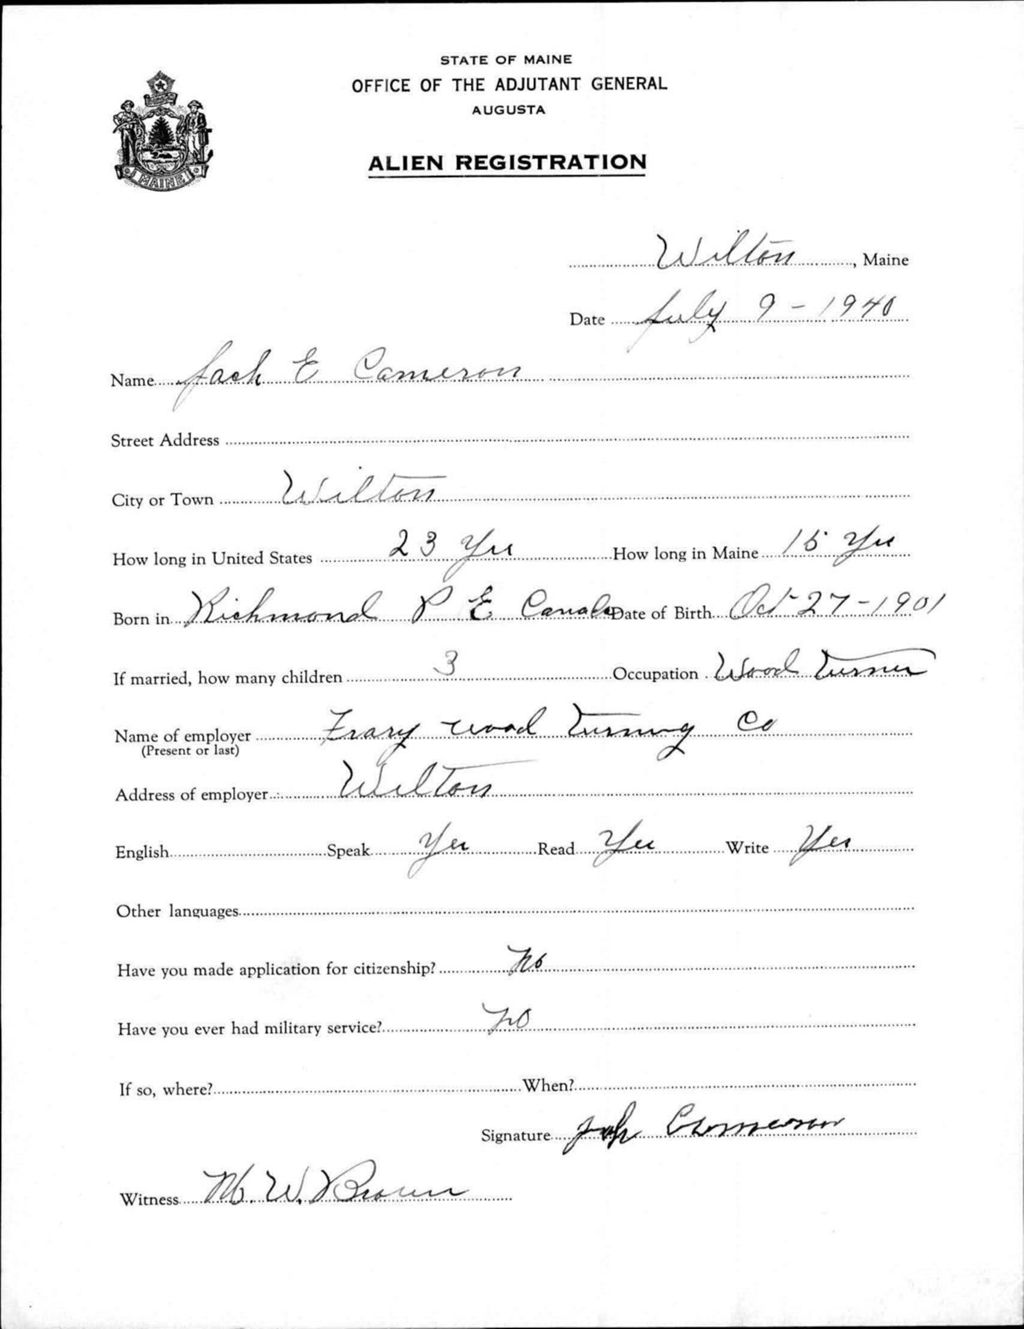 STATE OF MAINE
OFFICE OF THE ADJUTANT GENERAL
AUGUSTA
ALIEN REGISTRATION
MAINE
Wilton, Maine
Date July 9 - 1940
Name Jack E Cameron
Street Address
City or Town Wilton
How long in United States 23 Yrs How long in Maine 15 Yrs
Born in Richmond P E Canada Date of Birth Oct 27-1901
If married, how many children 3 Occupation Wood Turner
Name of employer Frary wood turning Co
(Present or last)
Address of employer Wilton
English Speak Yes Read Yes Write Yes
Other languages
Have you made application for citizenship? No
Have you ever had military service? No
If so, where? When?
Signature Jack Cameron
Witness M. W. Brown